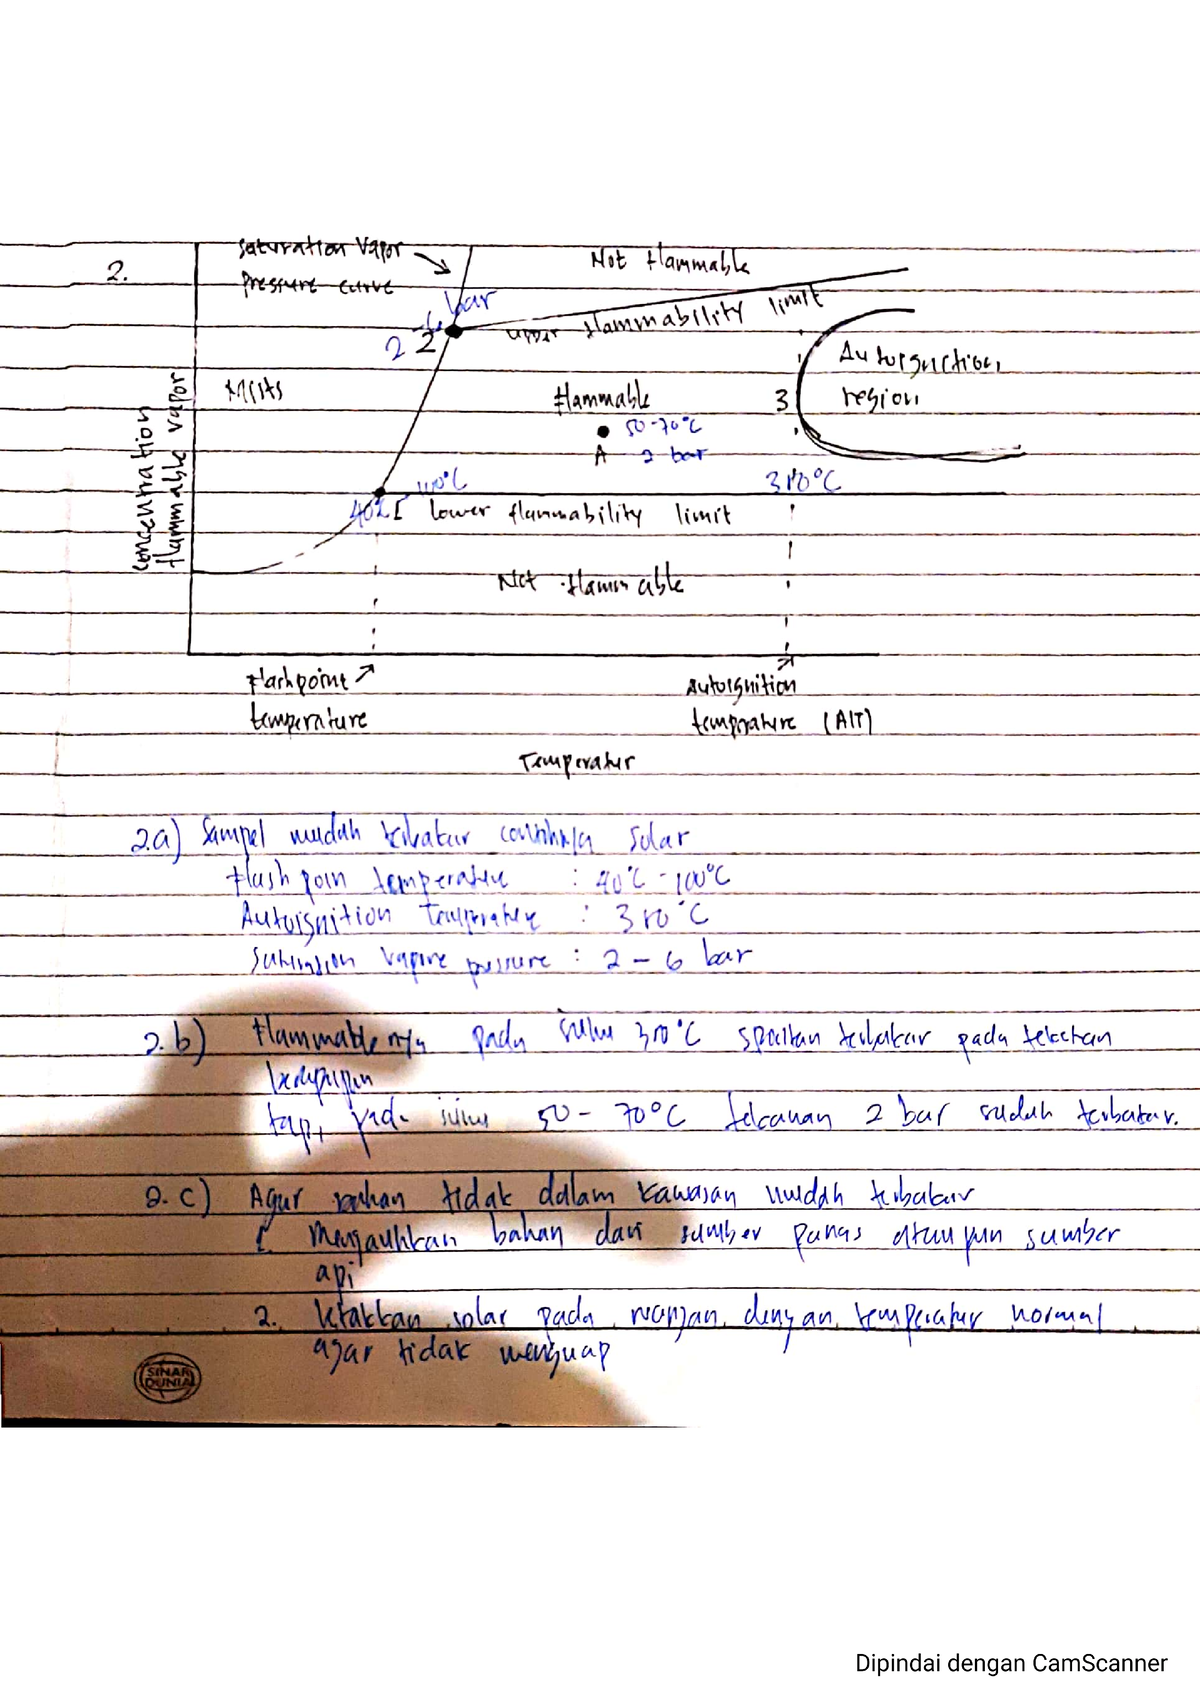 2.
Saturation Vapor
Pressure curve
Not flammable
6 bar
2 2
upper flammability limit
Autoignition
region
Mists
flammable
3
50-70°C
A 2 bar
concentration
flammable vapor
40°C 100°C
310°C
lower flammability limit
Not flammable
Flashpoint
temperature
Autoignition
temperature (AIT)
Temperatur
2a) Sampel mudah terbakar contohnya solar
Flash poin temperature : 40°C - 100°C
Autoignition Temperature : 310°C
Saturation vapore pressure : 2 - 6 bar
2.b) Flammable nya pada suhu 310°C terbakar pada tekanan
tapi pada suhu 50 - 70°C tekanan 2 bar sudah terbakar.
2.c) Agar bahan tidak dalam kawasan mudah terbakar
1. Mengauhkan bahan dari sumber panas ataupun sumber
api
2. letakkan solar pada ruangan dengan temperatur normal
agar tidak menguap
SINAR
DUNIA
Dipindai dengan CamScanner